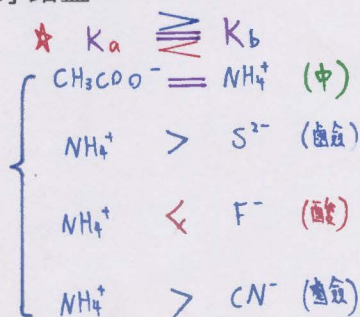 ☆ Ka ⋛ Kb
CH3COO⁻ = NH4⁺ (中)
NH4⁺ > S²⁻ (鹼)
NH4⁺ < F⁻ (酸)
NH4⁺ > CN⁻ (鹼)